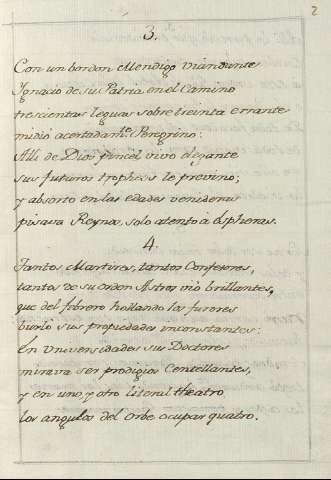 2
3.
Con un bordon Mendigo Viandante
Ygnacio de su Patria en el Camino
trescientas leguas sobre treinta errante
midió acertadam.te Peregrino:
Alli de Dios pincel vivo elegante
sus futuros tropheos le previno;
y absorto en las edades venideras
pisava Reynos, solo atento à Espheras.
4.
Tantos Martires, tantos Confesores,
tantos de su orden Astros vió brillantes,
que del febrero hollando los furores
burló sus propiedades inconstantes:
En Universidades sus Doctores
mirava ser prodigios Centellantes,
y en uno, y otro literal theatro
los angulos del Orbe ocupar quatro.